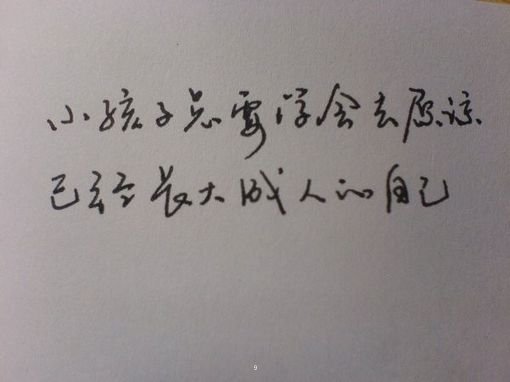 小孩子总要学会去原谅
已经长大成人的自己
9